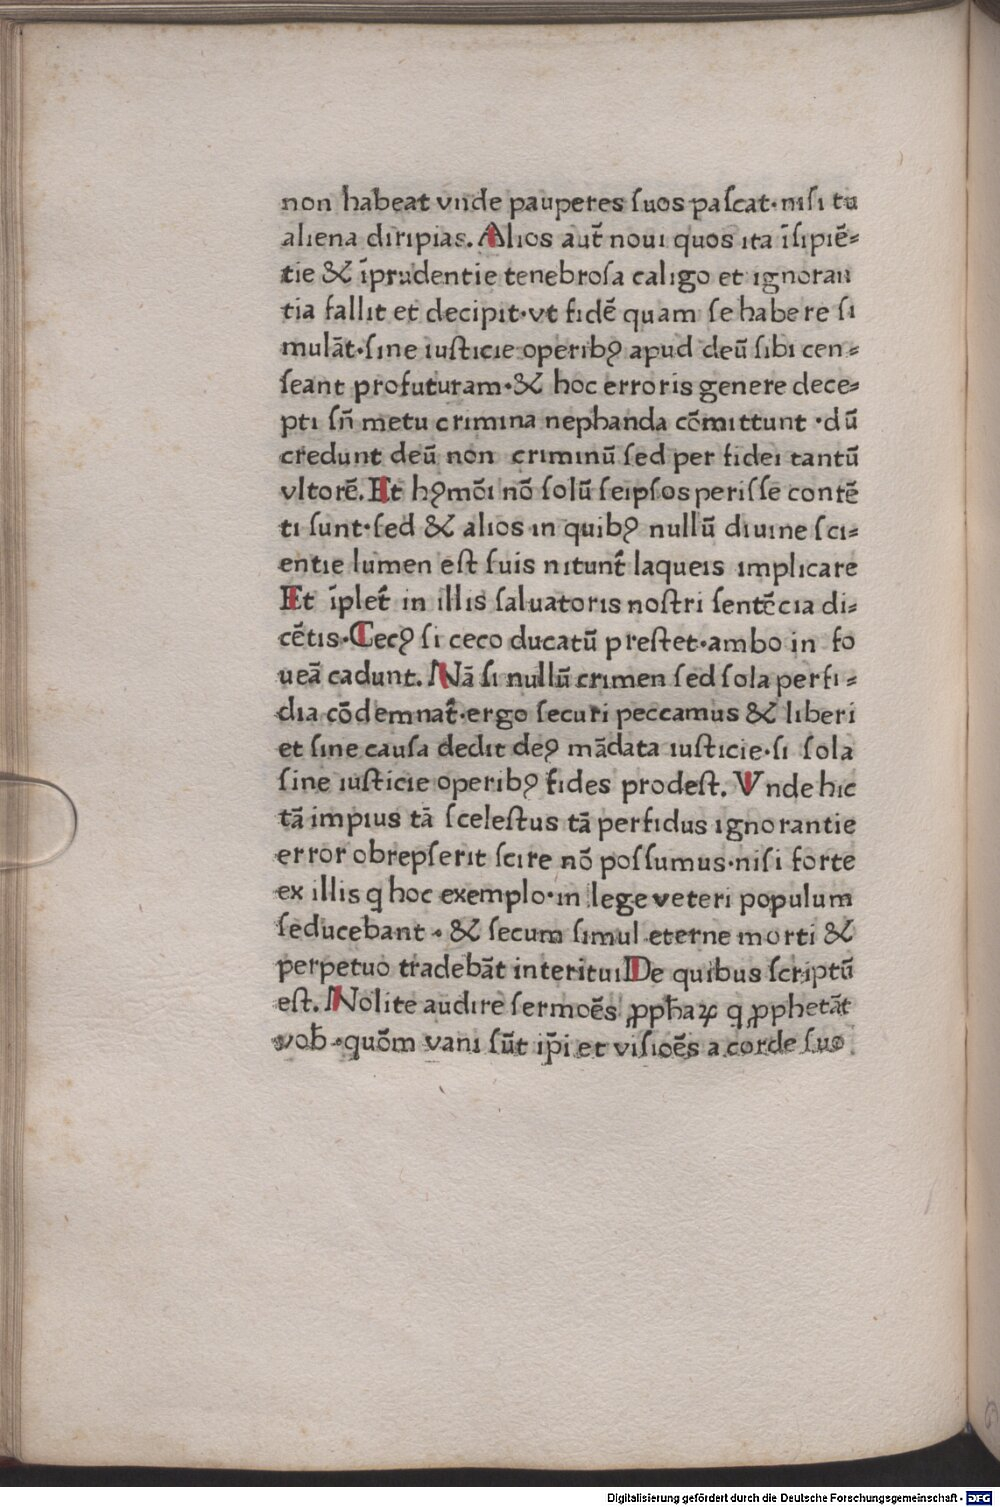 non habeat vnde pauperes ſuos paſcat·niſi tu
aliena diripias. Alios aut̄ noui quos ita īſipiē⸗
tie & īprudentie tenebroſa caligo et ignoran
tia fallit et decipit·vt fidē quam ſe habere ſi
mulāt·ſine iuſticie operibꝯ apud deū ſibi cen⸗
ſeant profuturam·& hoc erroris genere dece⸗
pti ſn̄ metu crimina nephanda cōmittunt ·dū
credunt deū non criminū ſed per fidei tantū
vltorē. Et hꝯmōi nō ſolū ſeipſos periſſe contē
ti ſunt·ſed & alios in quibꝯ nullū diuine ſci⸗
entie lumen eſt ſuis nitunt̄ laqueis implicare
Et īplet̄ in illis ſaluatoris noſtri ſentēcia di⸗
cētis·Cecꝯ ſi ceco ducatū preſtet·ambo in fo
ueā cadunt. Nā ſi nullū crimen ſed ſola perfi⸗
dia cōdemnat̄·ergo ſecuri peccamus & liberi
et ſine cauſa dedit deꝯ mādata iuſticie·ſi ſola
ſine iuſticie operibꝯ fides prodeſt. Vnde hic
tā impius tā ſceleſtus tā perfidus ignorantie
error obrepſerit ſcire nō poſſumus·niſi forte
ex illis q hoc exemplo·in lege veteri populum
ſeducebant · & ſecum ſimul eterne morti &
perpetuo tradebāt interitui De quibus ſcriptū
eſt. Nolite audire ſermoēs ꝓpħaꝝ q ꝓphetāt
vob̄ ·quōm vani ſūt ip̄i et viſioēs a corde ſuo
Digitalisierung gefördert durch die Deutsche Forschungsgemeinschaft - DFG